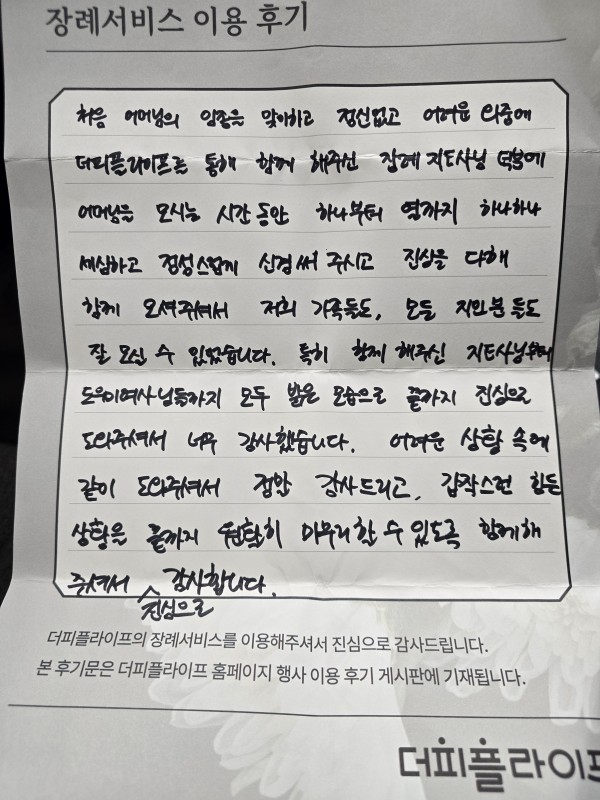 장례서비스 이용 후기
처음 어머님의 임종을 맞이하고 정신없고 어려운 와중에
더피플라이프를 통해 함께 해주신 장례지도사님 덕분에
어머님을 모시는 시간동안 하나부터 열까지 하나하나
세심하고 정성스럽게 신경써 주시고 진심을 다해
함께 모셔주셔서 저희 가족들도, 모든 지인분들도
잘 모실 수 있었습니다. 특히 함께 해주신 지도사님부터
도우미여사님들까지 모두 밝은 모습으로 끝까지 진심으로
도와주셔서 너무 감사했습니다. 어려운 상황 속에
같이 도와주셔서 정말 감사드리고, 갑작스런 힘든
상황을 끝까지 원활히 마무리할 수 있도록 함께해
주셔서 감사합니다.
진심으로
더피플라이프의 장례서비스를 이용해주셔서 진심으로 감사드립니다.
본 후기문은 더피플라이프 홈페이지 행사 이용 후기 게시판에 기재됩니다.
더피플라이프